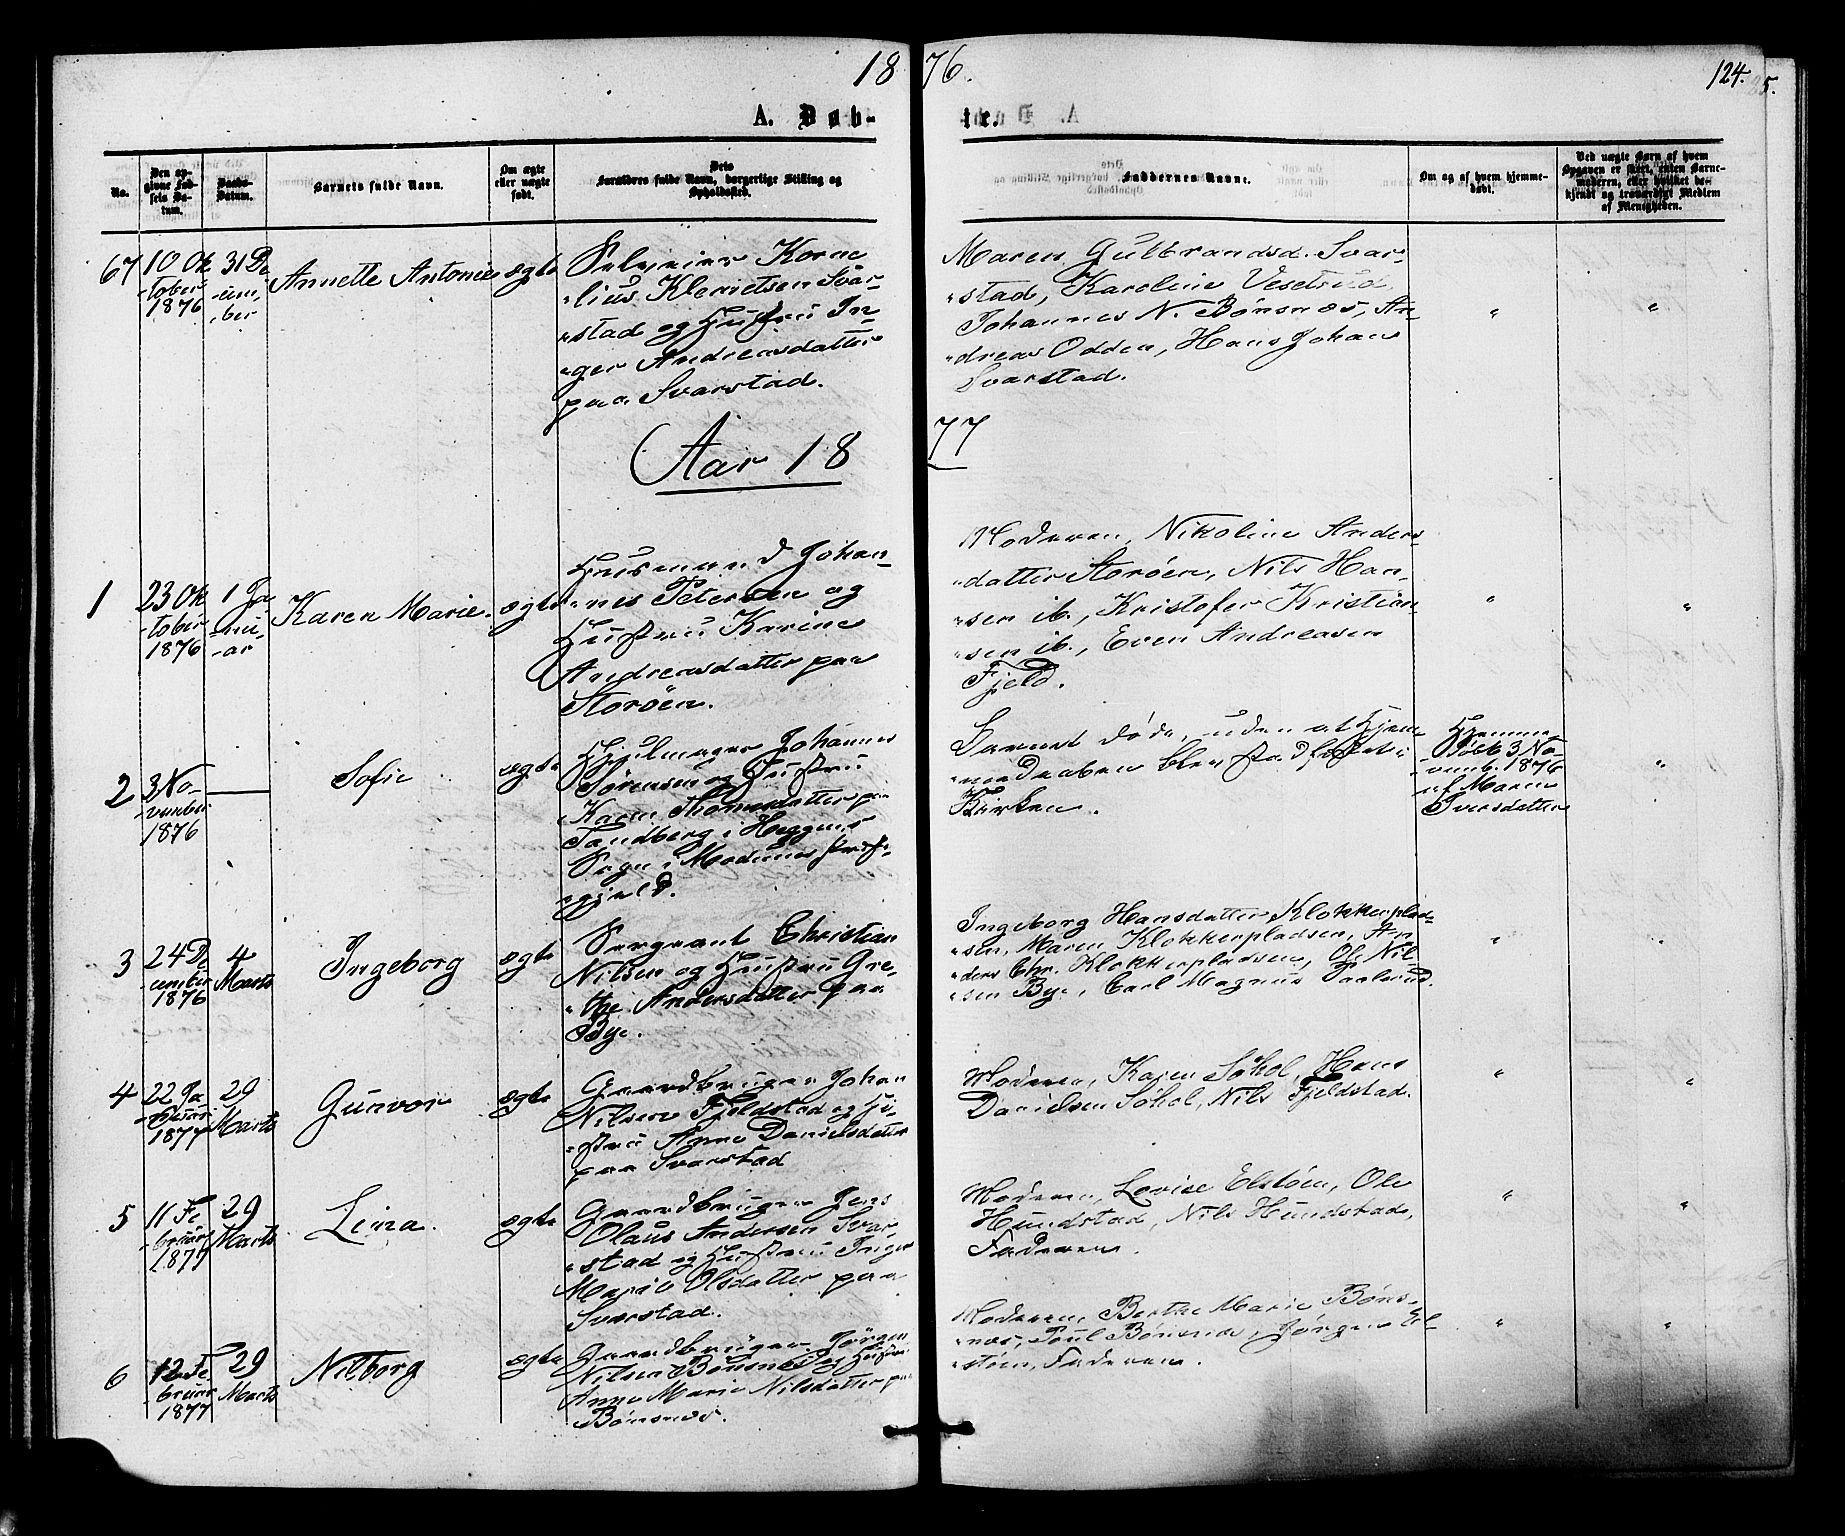 1876.
124.
A. Døb-
te.
No.
Den op-
givne Fød-
sels Da-
tum.
Daabs-
Datum.
Barnets fulde Navn.
Om ægte
eller uægte
født.
Dets
Forældres fulde Navn, borgerlige Stilling og
Opholdssted.
Faddernes Navne.
Om og af hvem hjemme-
døbt.
Ved uægte Børn af hvem
Opgaven er skeet, enten Barne-
moderen, eller hvilket be-
kjendt og troværdigt Medlem
af Menigheden.
67
10 Ok
-tober
1876
31 De
-cem,
-ber
Annette Antonie
ægte
Korne
-lius Svar-
-stad og Hustru In-
-ger Andreasdatter
paa Svarstad.
Maren Gulbrandsd. Svar-
-stad, Karoline Vesetrud,
Johannes N. Bönsnæs, An-
-dreas Odden, Hans Johan
Svarstad.
"
"
Aar 1877
1
23 Ok
-tober
1876
1 Ja
-nu,
-ar
Karen Marie.
ægte
Husmand Johan-
-nes Petersen og
Hustru Karine
Andreasdatter paa
Storöen.
Moderen, Nikoline Anders-
-datter Storöen, Nils Han-
-sen ib., Kristofer Kristian-
-sen ib., Even Andreasen
Fjeld.
"
"
2
3 No-
-vember
1876
Sofie
ægte
Hjulmager Johannes
Sörensen og Hustru
Karen Thomasdatter paa
Tandberg i Heggens
Sogn i Modums Præste-
-gjeld.
Barnet døde, uden at Hjem-
-medaaben blev stadfæstet i
Kirken.
Hjemme
døbt 3 No-
-vemb. 1876
af Maren
Iversdatter
"
3
24 De
-cember
1876
4
Marts
Ingeborg
ægte
Sergeant Christian
Nilsen og Hustru Gre-
-the Andersdatter paa
Bye.
Ingeborg Hansdatter Klokkerplad-
-sen, Maren Klokkerpladsen, An-
-ders Chr. Klokkerpladsen, Ole Nil-
-sen Bye, Carl Magnus
"
"
4
22 Ja-
-nuari
1877
29
Marts
Gunvor
ægte
Gaardbruger Johan
Nilsen Fjeldstad og Hu-
-stru Anne Danielsdatter
paa Svarstad
Moderen, Karen Søhol, Hans
Danielsen Søhol, Nils Fjeldstad.
"
"
5
11 Fe
-bruar
1877
29
Marts
Lina.
ægte
Gaardbruger Jens
Olaus Andersen Svar-
-stad og Hustru Inger
Marie Olsdatter paa
Svarstad.
Moderen, Lovise Elstøen, Ole
Hundstad, Nils Hundstad,
Faderen.
"
"
6
12 Fe
-bruar
1877
29
Marts
Nilborg
ægte
Gaardbruger Jörgen
Nilsen Bönsnæs og Hustru
Anne Marie Nilsdatter paa
Bönsnæs.
Moderen, Berthe Marie Böns-
-næs, Poul Bönsnæs, Jörgen El-
-støen, Faderen.
"
"